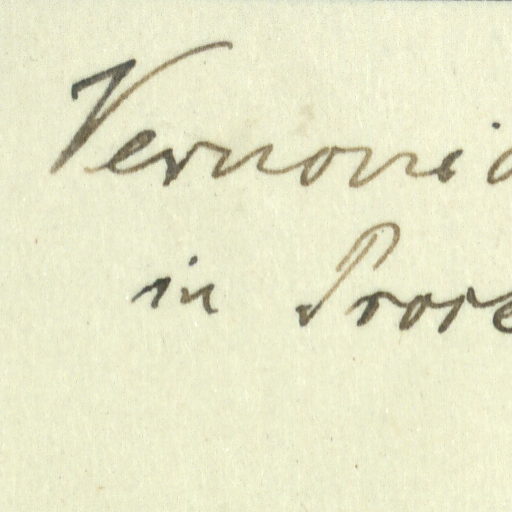 Vernonia
in Prove